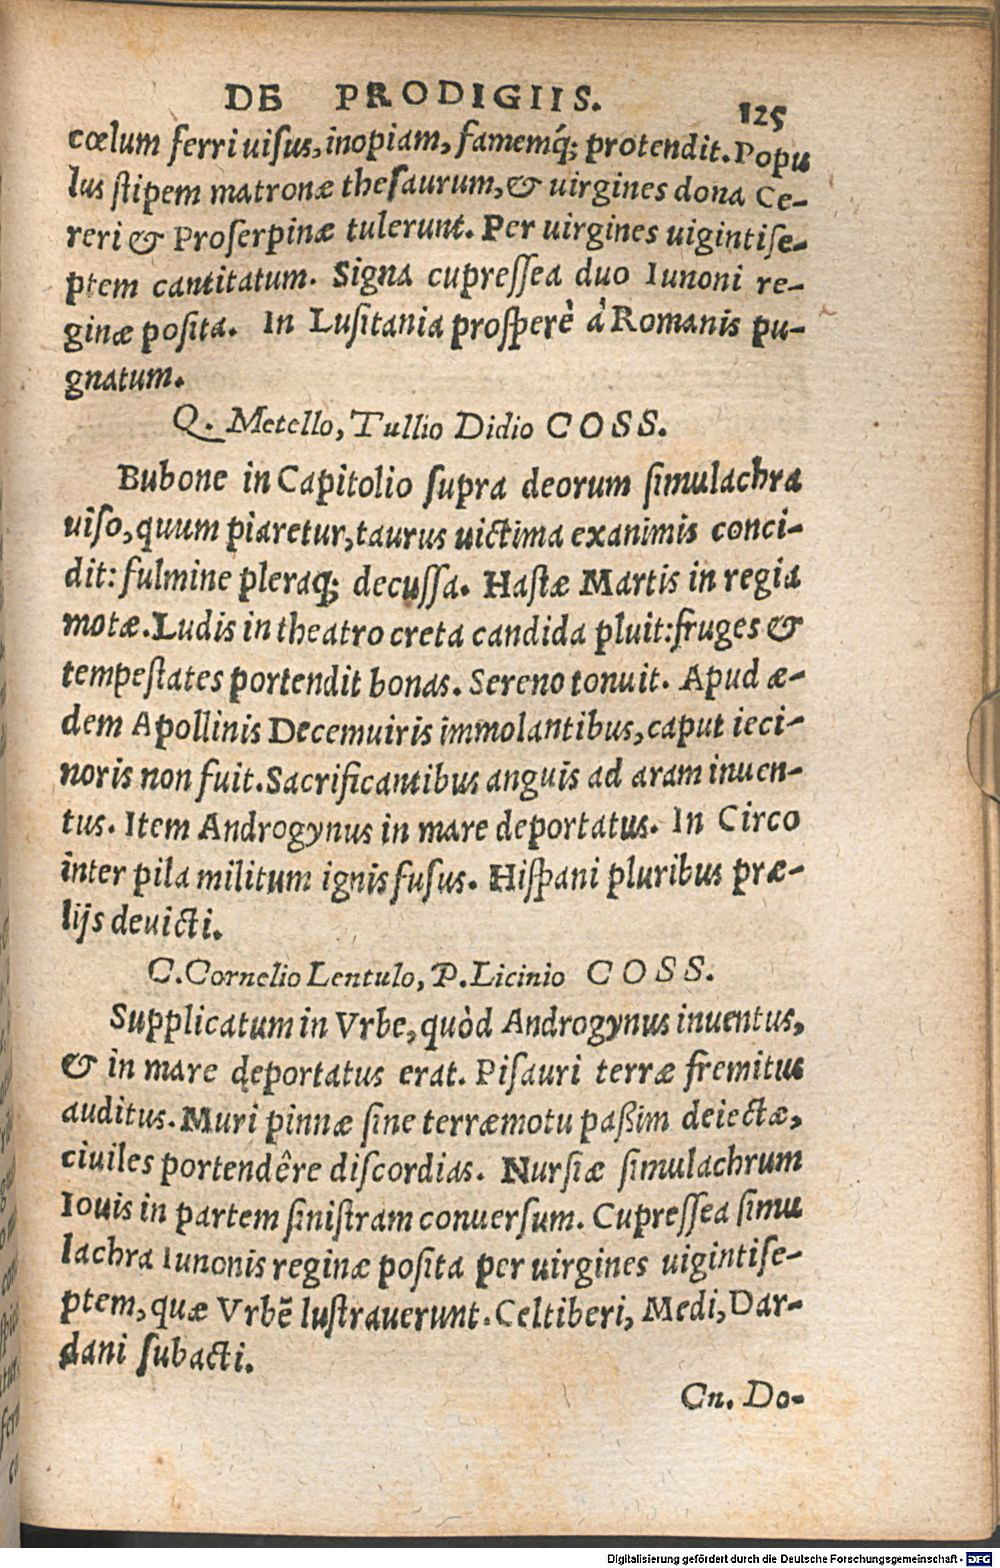 DE PRODIGIIS. 125
cœlum ferri uisus, inopiam, famemq́; protendit. Popu
lus ſtipem matronæ theſaurum, & uirgines dona Ce-
reri & Proſerpinæ tulerunt. Per uirgines uigintiſe-
ptem cantitatum. Signa cupreſſea duo Iunoni re-
ginæ poſita. In Luſitania proſperè à Romanis pu-
gnatum.
Q. Metello, Tullio Didio COSS.
Bubone in Capitolio ſupra deorum ſimulachra
uiſo, quum piaretur, taurus uictima exanimis conci-
dit: fulmine pleraq; decuſſa. Haſtæ Martis in regia
motæ. Ludis in theatro creta candida pluit: fruges &
tempeſtates portendit bonas. Sereno tonuit. Apud æ-
dem Apollinis Decemuiris immolantibus, caput ieci-
noris non fuit. Sacrificantibus anguis ad aram inuen-
tus. Item Androgynus in mare deportatus. In Circo
inter pila militum ignis fuſus. Hiſpani pluribus præ-
lijs deuicti.
C. Cornelio Lentulo, P. Licinio COSS.
Supplicatum in Vrbe, quòd Androgynus inuentus,
& in mare deportatus erat. Piſauri terræ fremitus
auditus. Muri pinnæ ſine terræmotu paßim deiectæ,
ciuiles portendêre diſcordias. Nurſiæ ſimulachrum
Iouis in partem ſiniſtram conuerſum. Cupreſſea ſimu
lachra Iunonis reginæ poſita per uirgines uigintiſe-
ptem, quæ Vrbē luſtrauerunt. Celtiberi, Medi, Dar-
dani ſubacti.
Cn. Do-
Digitalisierung gefördert durch die Deutsche Forschungsgemeinschaft - DFG